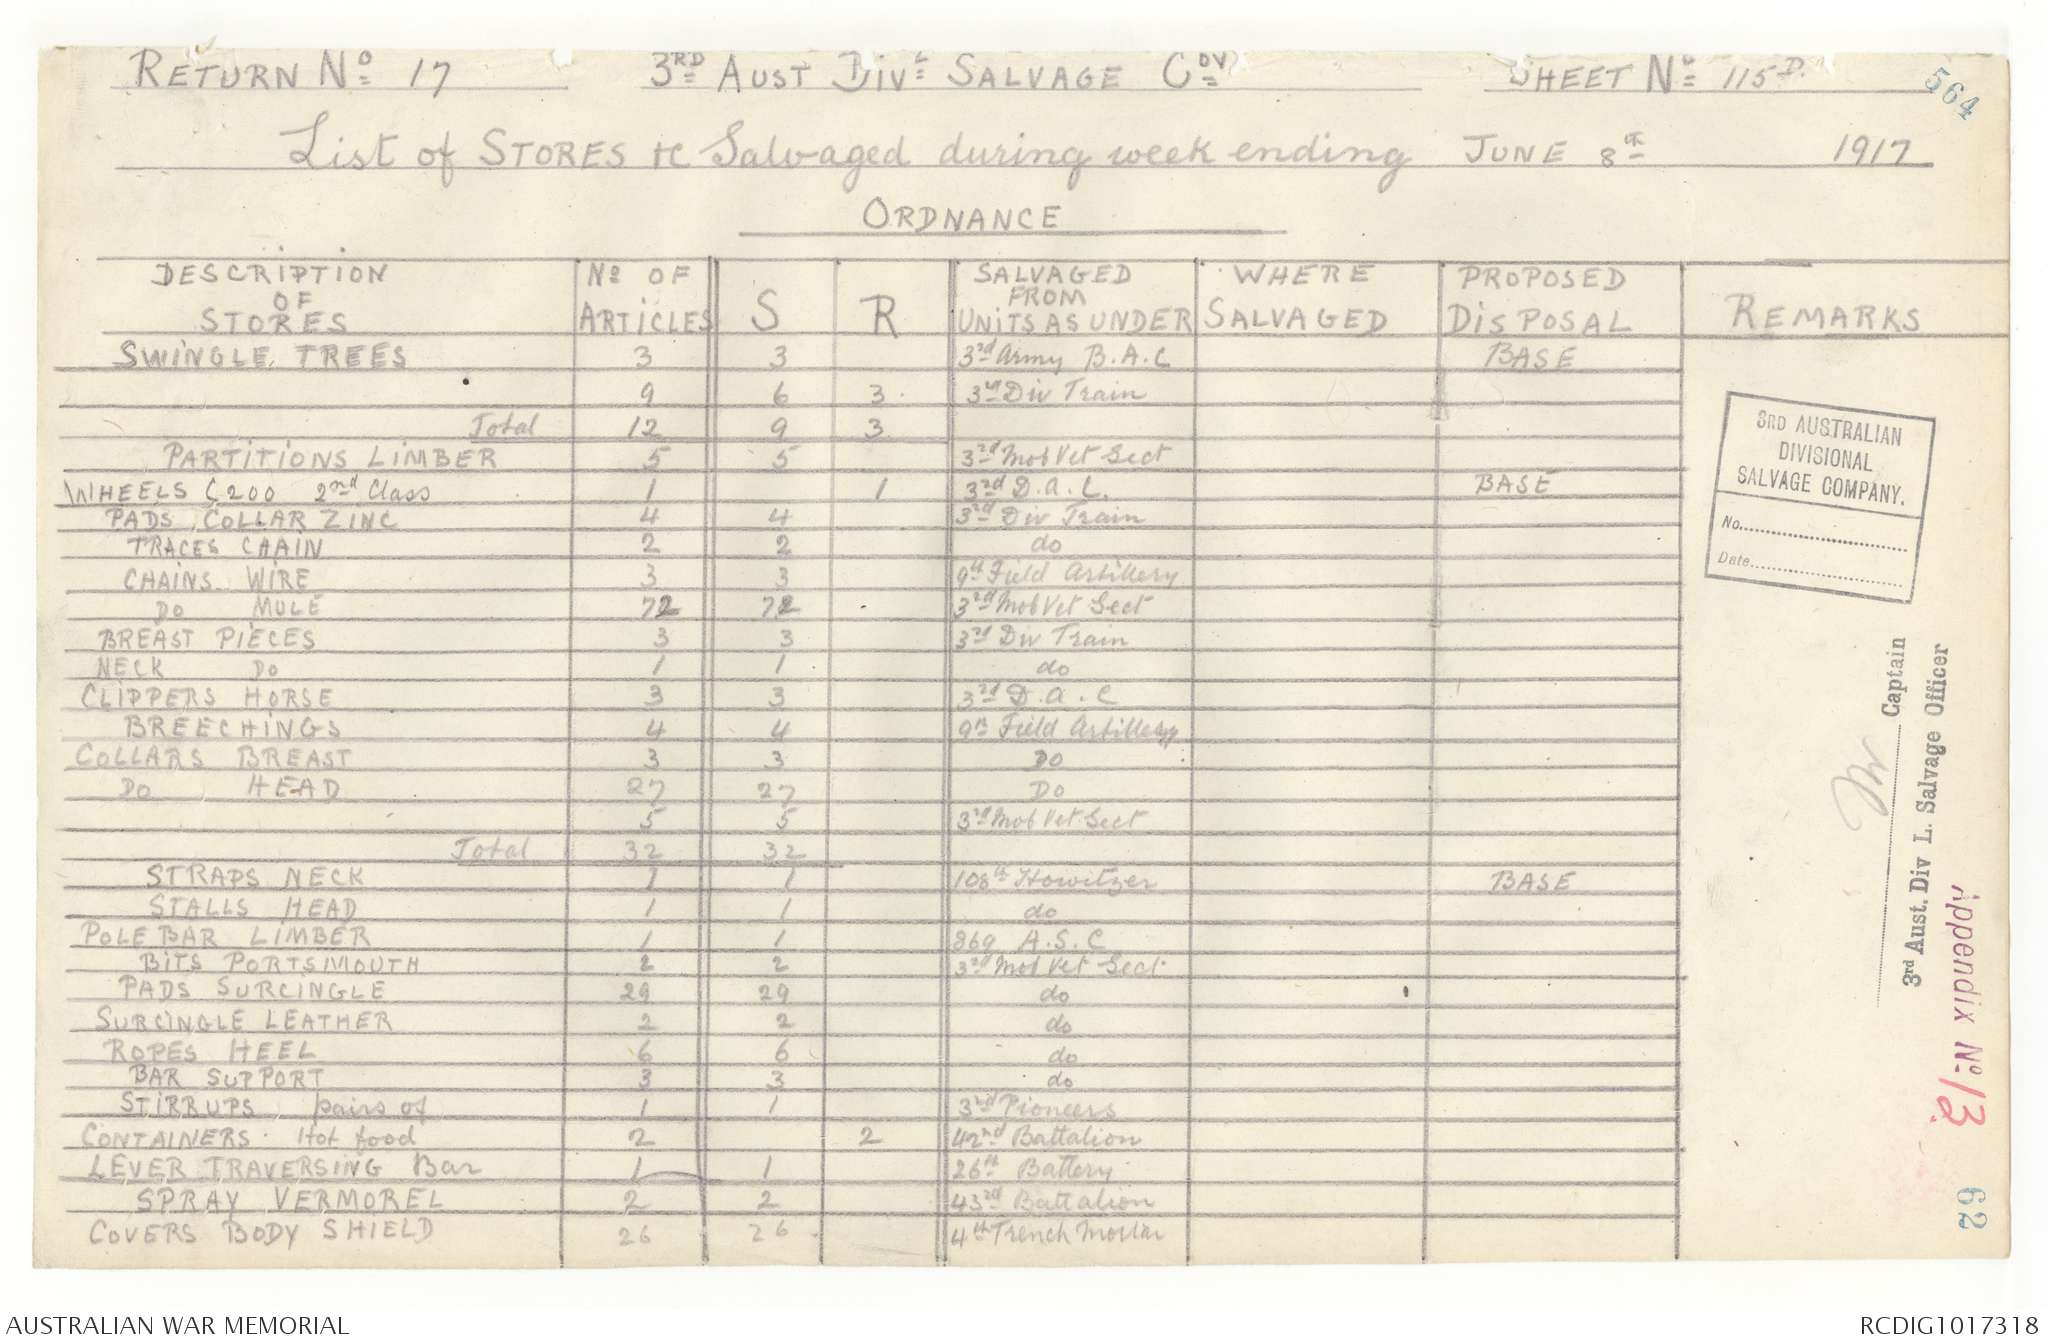 RETURN No 17 3RD AUST DIVL SALVAGE Coy SHEET No 115D.
564
List of STORES &c Salvaged during week ending JUNE 8th 1917
ORDNANCE
DESCRIPTION OF STORES No OF ARTICLES S R SALVAGED FROM UNITS AS UNDER WHERE SALVAGED PROPOSED DISPOSAL REMARKS
SWINGLE TREES 3 3 3rd Army B.A.C BASE
9 6 3 3rd Div Train
Total 12 9 3
PARTITIONS LIMBER 5 5 3rd Mob Vet Sect
WHEELS C200 2nd Class 1 1 3rd D.A.C. BASE
PADS, COLLAR ZINC 4 4 3rd Div Train
TRACES CHAIN 2 2 do
CHAINS WIRE 3 3 9th Field Artillery
DO MULE 72 72 3rd Mob Vet Sect
BREAST PIECES 3 3 3rd Div Train
NECK DO 1 1 do
CLIPPERS HORSE 3 3 3rd D.A.C
BREECHINGS 4 4 9th Field Artillery
COLLARS BREAST 3 3 DO
DO HEAD 27 27 DO
5 5 3rd Mob Vet Sect
Total 32 32
STRAPS NECK 1 1 108th Howitzer BASE
STALLS HEAD 1 1 do
POLE BAR LIMBER 1 1 869 A.S.C
BITS PORTSMOUTH 2 2 3rd Mob Vet Sect
PADS SURCINGLE 29 29 do
SURCINGLE LEATHER 2 2 do
ROPES HEEL 6 6 do
BAR SUPPORT 3 3 do
STIRRUPS pairs of 1 1 3rd Pioneers
CONTAINERS. Hot food 2 2 42nd Battalion
LEVER TRAVERSING Bar 1 1 26th Battery
SPRAY VERMOREL 2 2 43rd Battalion
COVERS BODY SHIELD 26 26 4th Trench Mortar
3RD AUSTRALIAN
DIVISIONAL
SALVAGE COMPANY.
No.
Date
Captain
3rd Aust. Div L. Salvage Officer
Appendix No 13
62
AUSTRALIAN WAR MEMORIAL RCDIG1017318